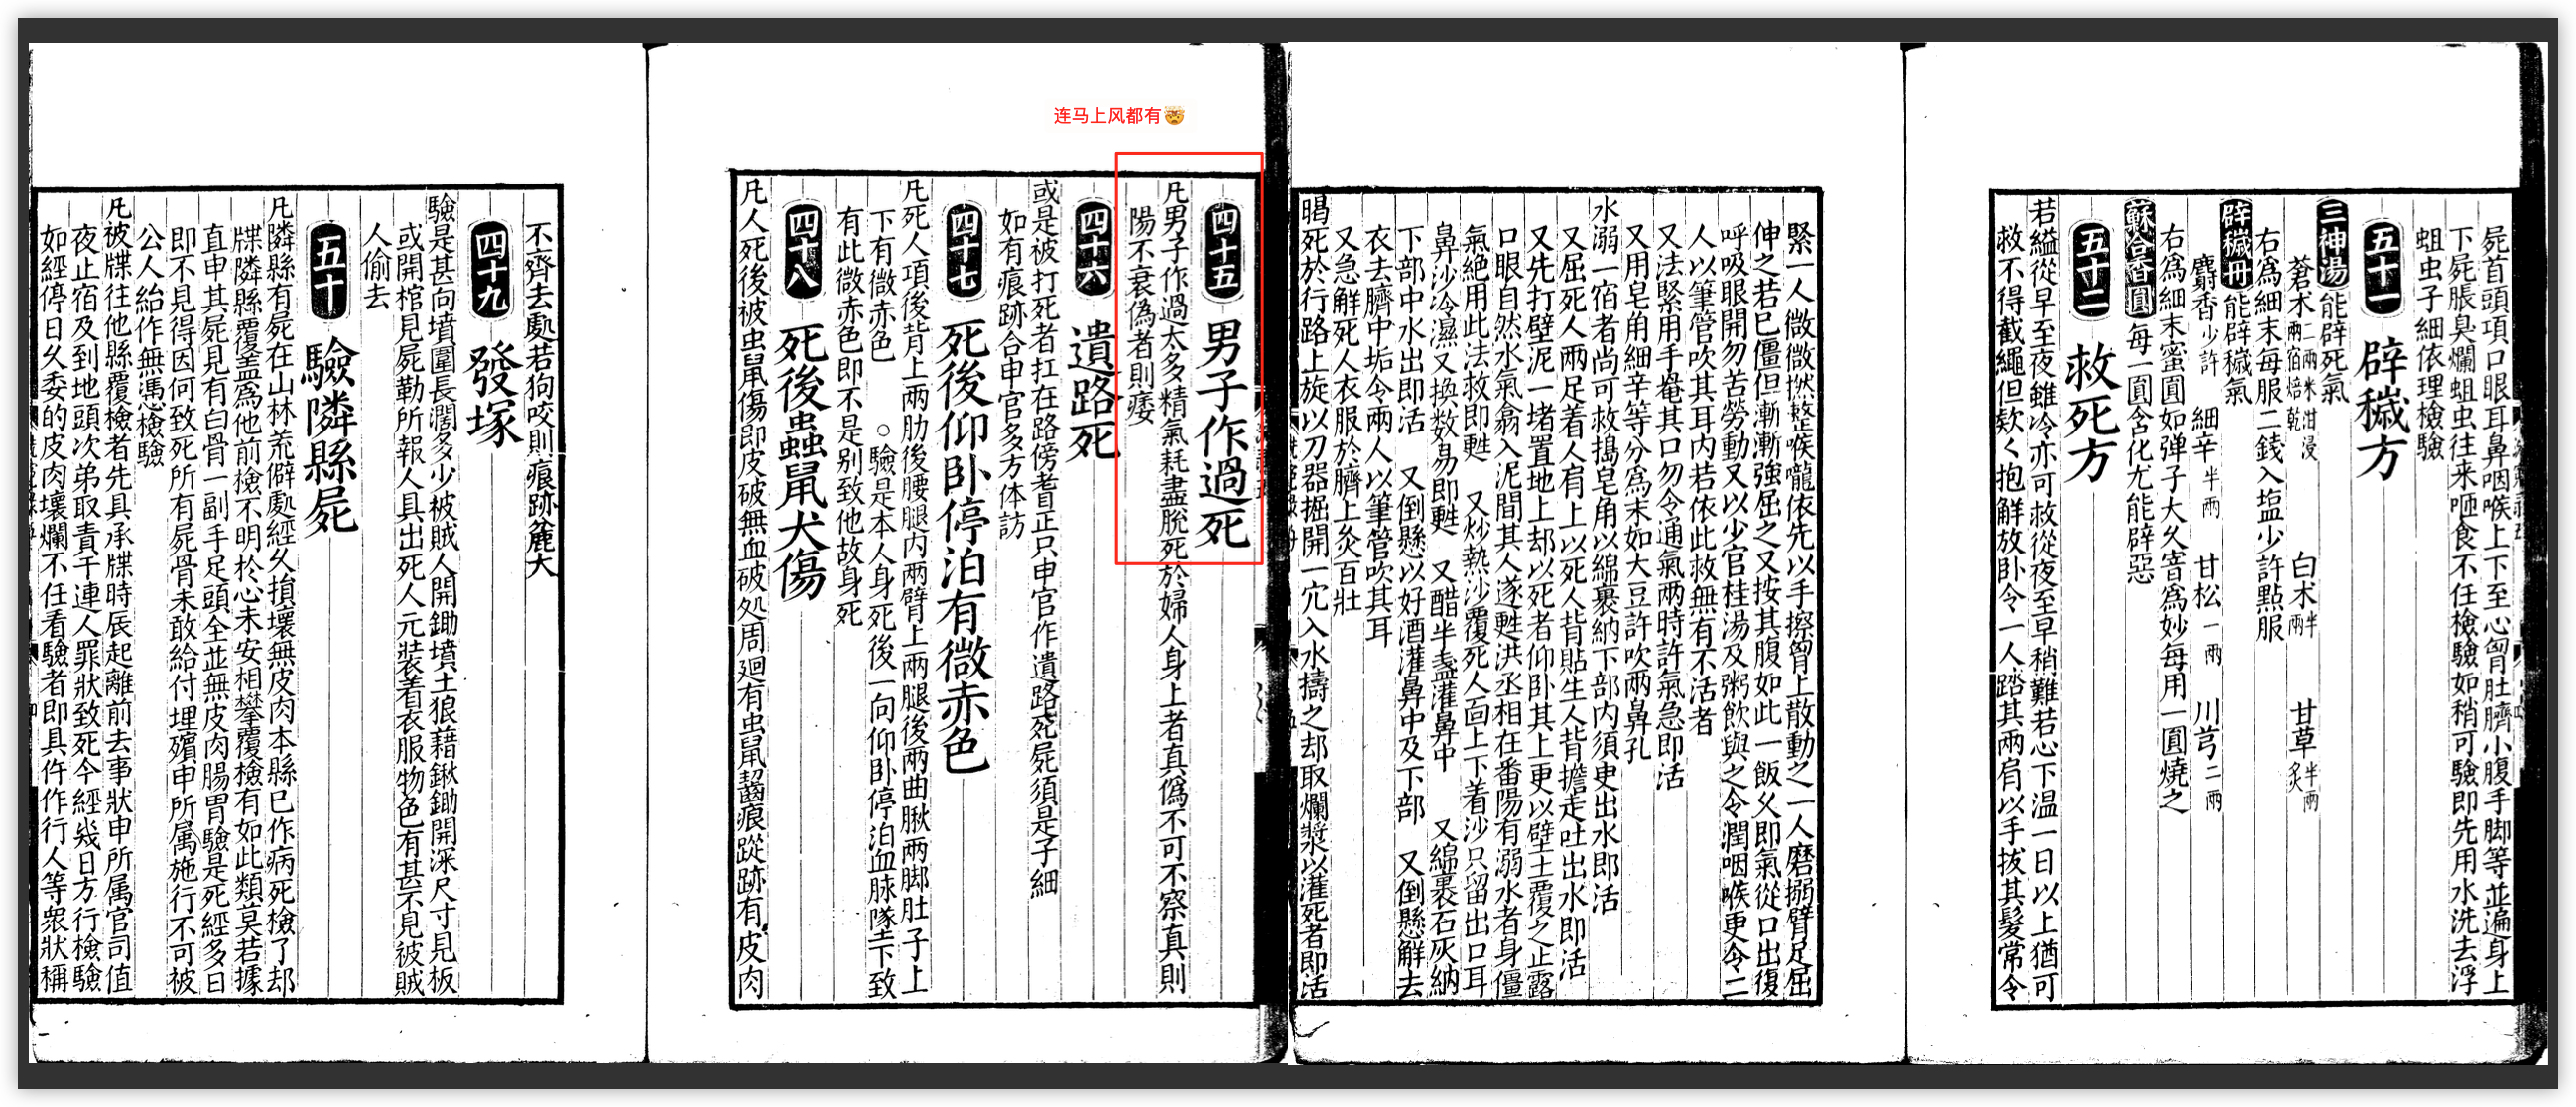 连马上风都有🤯
四十五 男子作過死
凡男子作過太多精氣耗盡脫死於婦人身上者真偽不可不察真則
陽不衰偽者則痿
四十六 遺路死
或是被打死者扛在路傍耆正只申官作遺路死屍須是子細
如有痕跡合申官多方体訪
四十七 死後仰卧停泊有微赤色
凡死人項後背上兩肋後腰腿内兩臂上兩腿後兩曲𦝫兩脚肚子上
下有微赤色 ○驗是本人身死後一向仰卧停泊血脉墜下致
有此微赤色即不是别致他故身死
四十八 死後蟲鼠犬傷
凡人死後被虫鼠傷即皮破無血破処周廻有虫鼠齧痕蹤跡有皮肉
不齊去處若狗咬則痕跡麄大
四十九 發塚
驗是甚向墳圍長濶多少被賊人開鋤墳土狼藉鍬鋤開深尺寸見板
或開棺見屍勒所報人具出死人元装着衣服物色有甚不見被賊
人偷去
五十 驗隣縣屍
凡隣縣有屍在山林荒僻處經久損壞無皮肉本縣已作病死檢了却
牒隣縣覆盖爲他前檢不明於心未安相攀覆檢有如此類莫若據
直申其屍見有白骨一副手足頭全並無皮肉腸胃驗是死經多日
即不見得因何致死所有屍骨未敢給付埋殯申所属施行不可被
公人紿作無憑檢驗
凡被牒往他縣覆檢者先具承牒時辰起離前去事狀申所属官司值
夜止宿及到地頭次弟取責干連人罪狀致死今經㡬日方行檢驗
如經停日久委的皮肉壞爛不任看驗者即具仵作行人等衆狀稱
屍首頭項口眼耳鼻咽喉上下至心胷肚臍小腹手脚等並遍身上
下屍脹臭爛蛆虫往来咂食不任檢驗如稍可驗即先用水洗去浮
蛆虫子細依理檢驗
五十一 辟穢方
三神湯 能辟死氣
蒼朮二兩米泔浸兩宿焙乾 白朮半兩 甘草半兩炙
右爲細末每服二錢入塩少許點服
辟穢丹 能辟穢氣
麝香少許 細辛半兩 甘松一兩 川芎二兩
右爲細末蜜圓如弹子大久窨爲妙每用一圓燒之
蘇合香圓 每一圓含化尤能辟惡
五十二 救死方
若縊從早至夜雖冷亦可救從夜至早稍難若心下温一日以上猶可
救不得截繩但欵く抱解放卧令一人踏其兩肩以手拔其髪常令
緊一人微微撚整喉嚨依先以手擦胷上散動之一人磨搦臂足屈
伸之若已僵但漸漸強屈之又按其腹如此一飯乆即氣從口出復
呼吸眼開勿苦勞動又以少官桂湯及粥飲與之令潤咽喉更令二
人以筆管吹其耳内若依此救無有不活者
又法緊用手罨其口勿令通氣兩時許氣急即活
又用皂角細辛等分爲末如大豆許吹兩鼻孔
水溺一宿者尚可救搗皂角以綿裹納下部内須更出水即活
又屈死人兩足着人肩上以死人背貼生人背擔走吐出水即活
又先打壁泥一堵置地上却以死者仰卧其上更以壁土覆之止露
口眼自然水氣翕入泥間其人遂甦洪丞相在番陽有溺水者身僵
氣絶用此法救即甦 又炒熱沙覆死人面上下着沙只留出口耳
鼻沙冷濕又换数易即甦 又醋半盞灌鼻中 又綿裹石灰納
下部中水出即活 又倒懸以好酒灌鼻中及下部 又倒懸解去
衣去臍中垢令兩人以筆管吹其耳
又急解死人衣服於臍上灸百壯
暍死於行路上旋以刀器掘開一穴入水擣之却取爛漿以灌死者即活